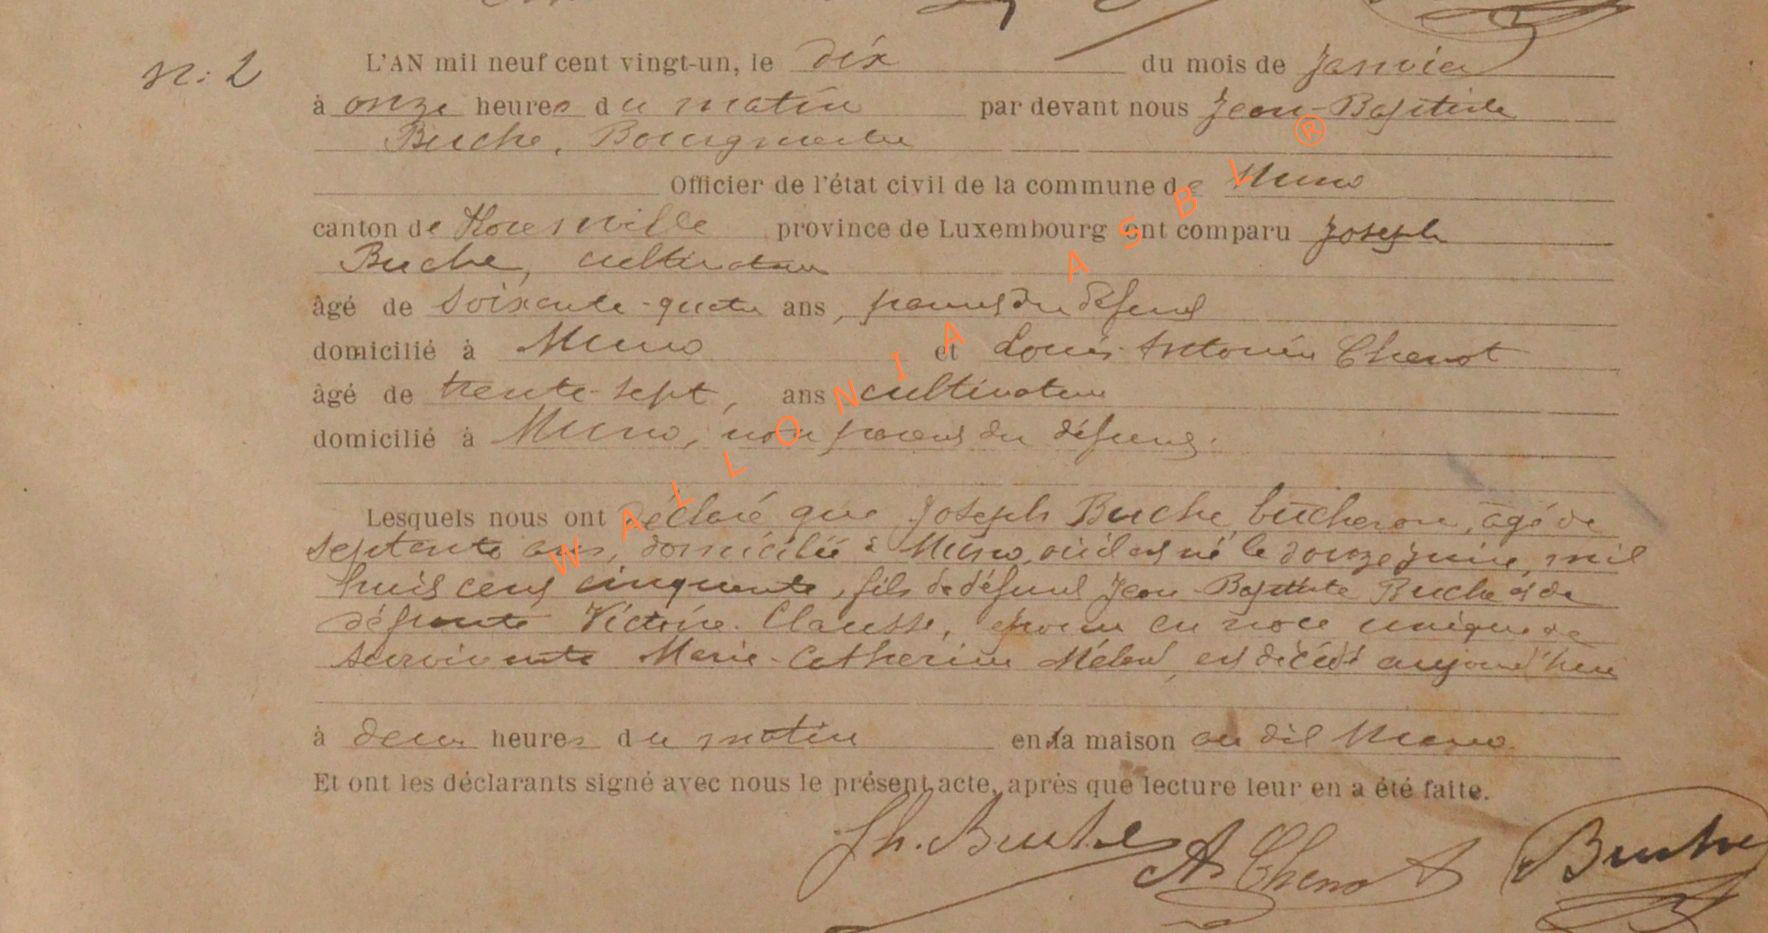 n: 2
L'AN mil neuf cent vingt-un, le dix du mois de janvier
à onze heures du matin par devant nous Jean-Baptiste
Buche, Bourgmestre
Officier de l'état civil de la commune de Muno
canton de Florenville province de Luxembourg ont comparu Joseph
Buche, cultivateur
âgé de soixante-quatre ans, parent du défunt
domicilié à Muno et Louis-Antonin Chenot
âgé de trente-sept, ans cultivateur
domicilié à Muno, non parent du défunt.
Lesquels nous ont déclaré que Joseph Buche, bûcheron, âgé de
septante ans, domicilié à Muno, où il est né le douze juin, mil
huit cent cinquante, fils de défunt Jean-Baptiste Buche et de
défunte Victoire Clausse, époux en noce unique de
survivante Marie-Catherine est décédé aujourd'hui
à deux heures du matin en sa maison au dit Muno.
Et ont les déclarants signé avec nous le présent acte, après que lecture leur en a été faite.
Jh. Buche A Chenot Buche
WALLONIA ASBL ®